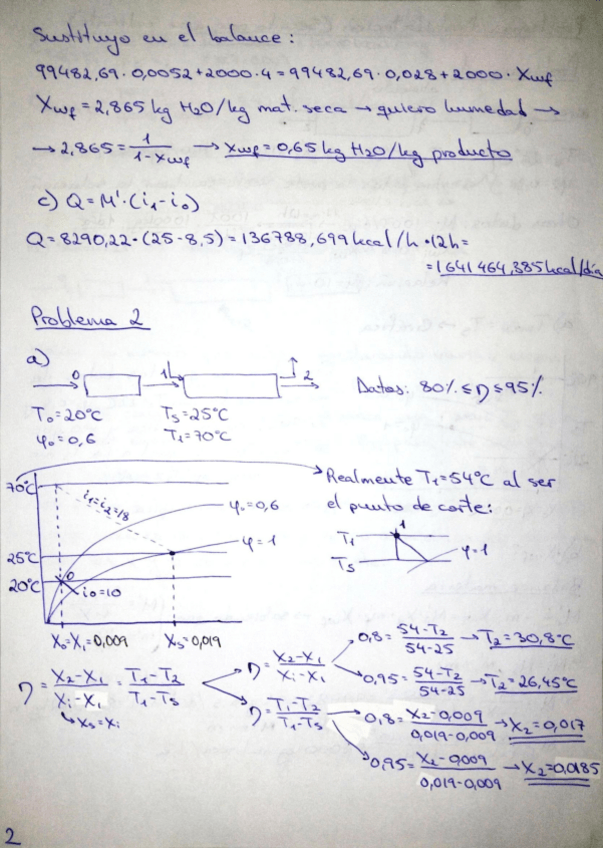 Sustituyo en el balance:
99482,69·0,0052+2000·4=99482,69·0,028+2000·Xwf
Xwf=2,865 kg H2O/kg mat. seca → quiero humedad →
→ 2,865= 1/1-xwf → xwf=0,65 kg H2O/kg producto
c) Q=M'·(i1-i0)
Q=8290,22·(25-8,5)=136788,699 kcal/h·12h=
=1641464,385 kcal/día
Problema 2
a)
0 1 2
Datos: 80% ≤ η ≤ 95%
T0=20°C Ts=25°C
φ0=0,6 T1=70°C
70°C i1=i2=18 φ0=0,6
Realmente T1=54°C al ser
el punto de corte:
1
T1
Ts φ=1
25°C φ=1
20°C 0 i0=10
X0=X1=0,009 Xs=0,019
η= X2-X1/Xi-X1 = T1-T2/T1-Ts
↳ Xs=Xi
η= X2-X1/Xi-X1
0,8= 54-T2/54-25 → T2=30,8°C
0,95= 54-T2/54-25 → T2=26,45°C
η= T1-T2/T1-Ts
0,8= X2-0,009/0,019-0,009 → X2=0,017
0,95= X2-0,009/0,019-0,009 → X2=0,0185
2